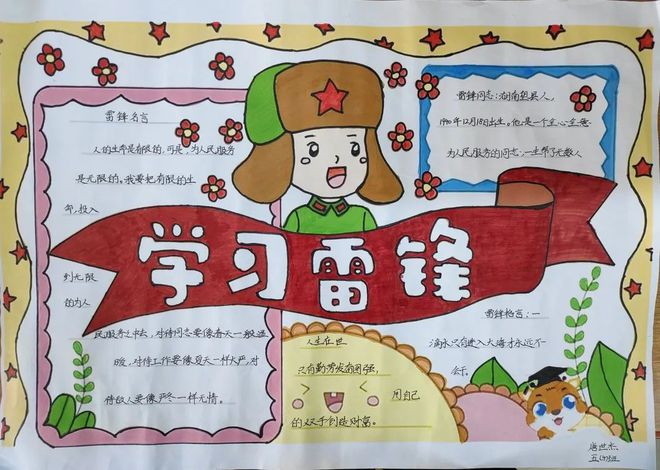 学习雷锋
雷锋名言
人的生命是有限的,可是,为人民服务
是无限的。我要把有限的生
命,投入
到无限
的为人
民服务之中去,对待同志要像春天一般温
暖,对待工作要像夏天一样火严,对
待敌人要像严冬一样无情。
雷锋同志:湖南望县人,
1940年12月18日出生。他是一个全心全意
为人民服务的同志,一生帮了无数人
人生在世
只有勤劳发奋图强
用自己
的双手创造财富。
雷锋格言:一
滴水只有进入大海才永远不
会干
五(4)班